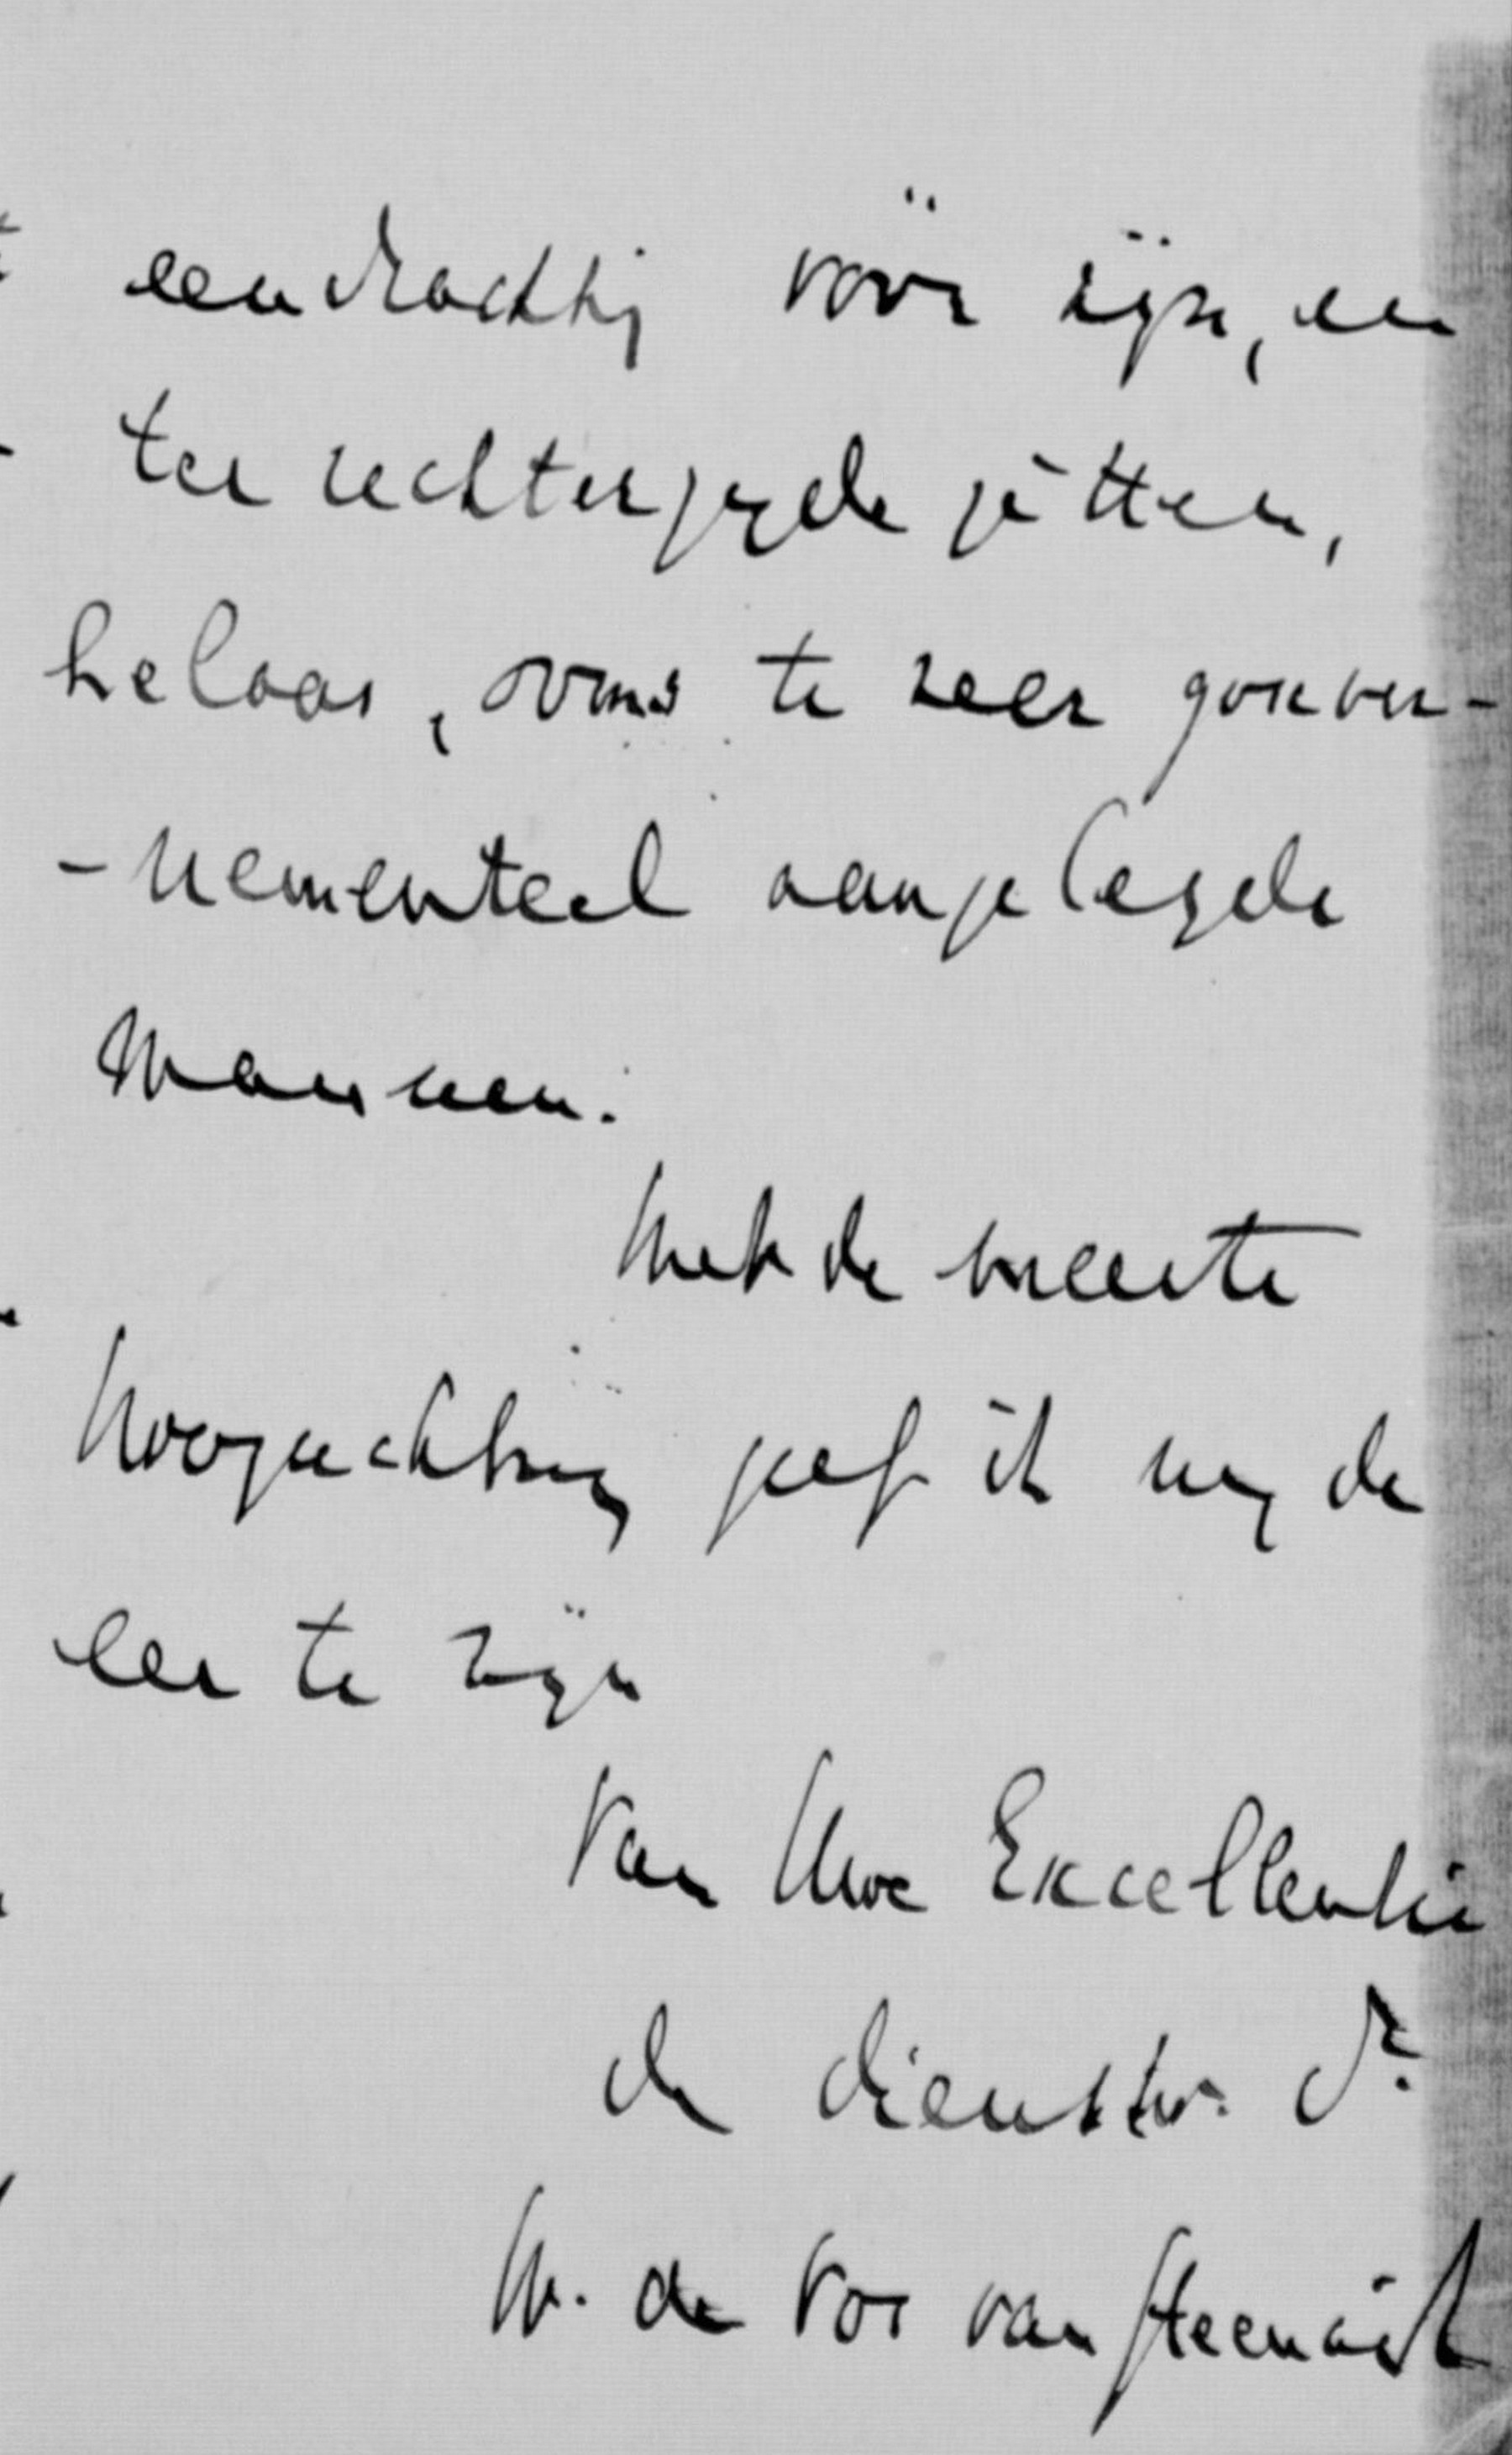 eendrachtig vóór zijn, en
ter rechterzijde zitten,
helaas, soms te zeer gouver-
-nementeel aangelegde
mannen.
Met de meeste
hoogachting heb ik de
eer te zijn
Van Uwe Excellentie
de dienstw. dr.
W. de Vos van Steenwijk